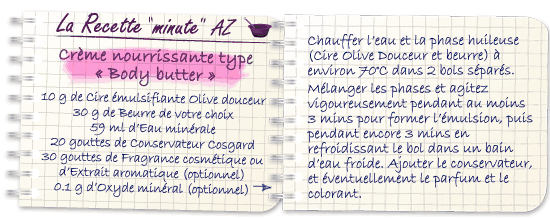 La Recette "minute" AZ
Crème nourrissante type
« Body butter »
10 g de Cire émulsifiante Olive douceur
30 g de Beurre de votre choix
59 ml d'Eau minérale
20 gouttes de Conservateur Cosgard
30 gouttes de Fragrance cosmétique ou
d'Extrait aromatique (optionnel)
0.1 g d'Oxyde minéral (optionnel)
Chauffer l'eau et la phase huileuse
(Cire Olive Douceur et beurre) à
environ 70°C dans 2 bols séparés.
Mélanger les phases et agitez
vigoureusement pendant au moins
3 mins pour former l'émulsion, puis
pendant encore 3 mins en
refroidissant le bol dans un bain
d'eau froide. Ajouter le conservateur,
et éventuellement le parfum et le
colorant.